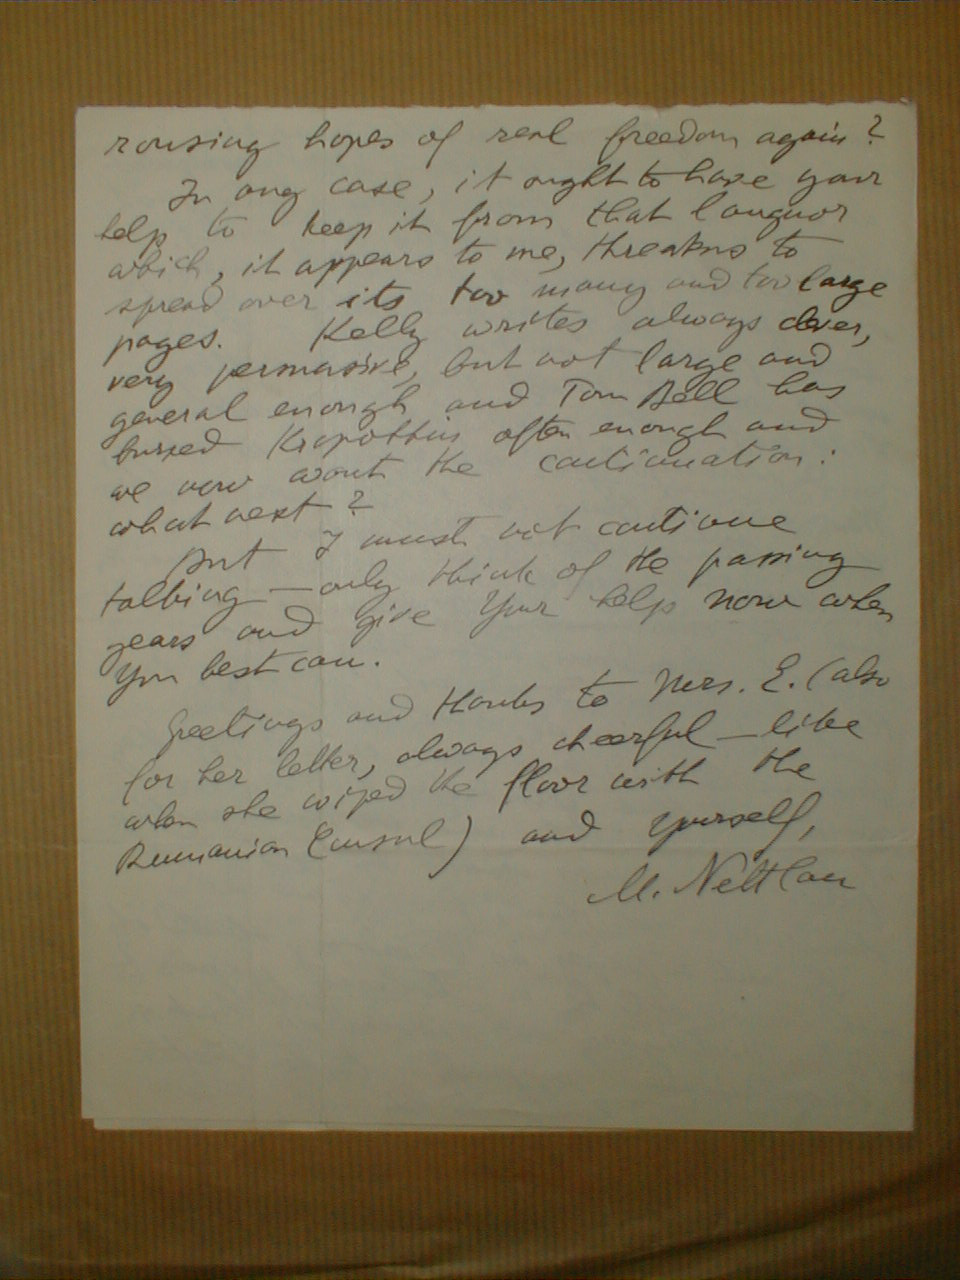 rousing hopes of real freedom again?
In any case, it ought to have your
help to keep it from that languor
which, it appears to me, threatens to
spread over its too many and too large
pages. Kelly writes always clever,
very persuasive, but not large and
general enough and Tom Bell has
buried Kropotkin often enough and
we now want the continuation:
what next?
But I must not continue
talking — only think of the passing
years and give your help now when
you best can.
Greetings and thanks to Mrs. E. (also
for her letter, always cheerful — like
when she wiped the floor with the
Rumanian Consul) and yourself,
M. Nettlau